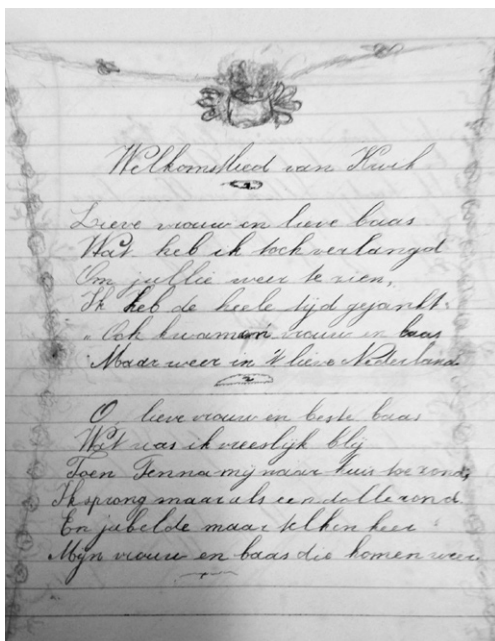 Welkomstlied van Kuik
1
Lieve vrouw en lieve baas
Wat heb ik toch verlangd
Om jullie weer te zien,
Ik heb de heele tijd gejankt:
"Och kwamen vrouw en baas
Maar weer in 't lieve Nederland
2
O lieve vrouw en beste baas
Wat was ik vreeslijk blij
Toen Tenna mij naar huis toe zond,
Ik sprong maar als een dolle rond
En jubelde maar telken keer:
Mijn vrouw en baas die komen weer